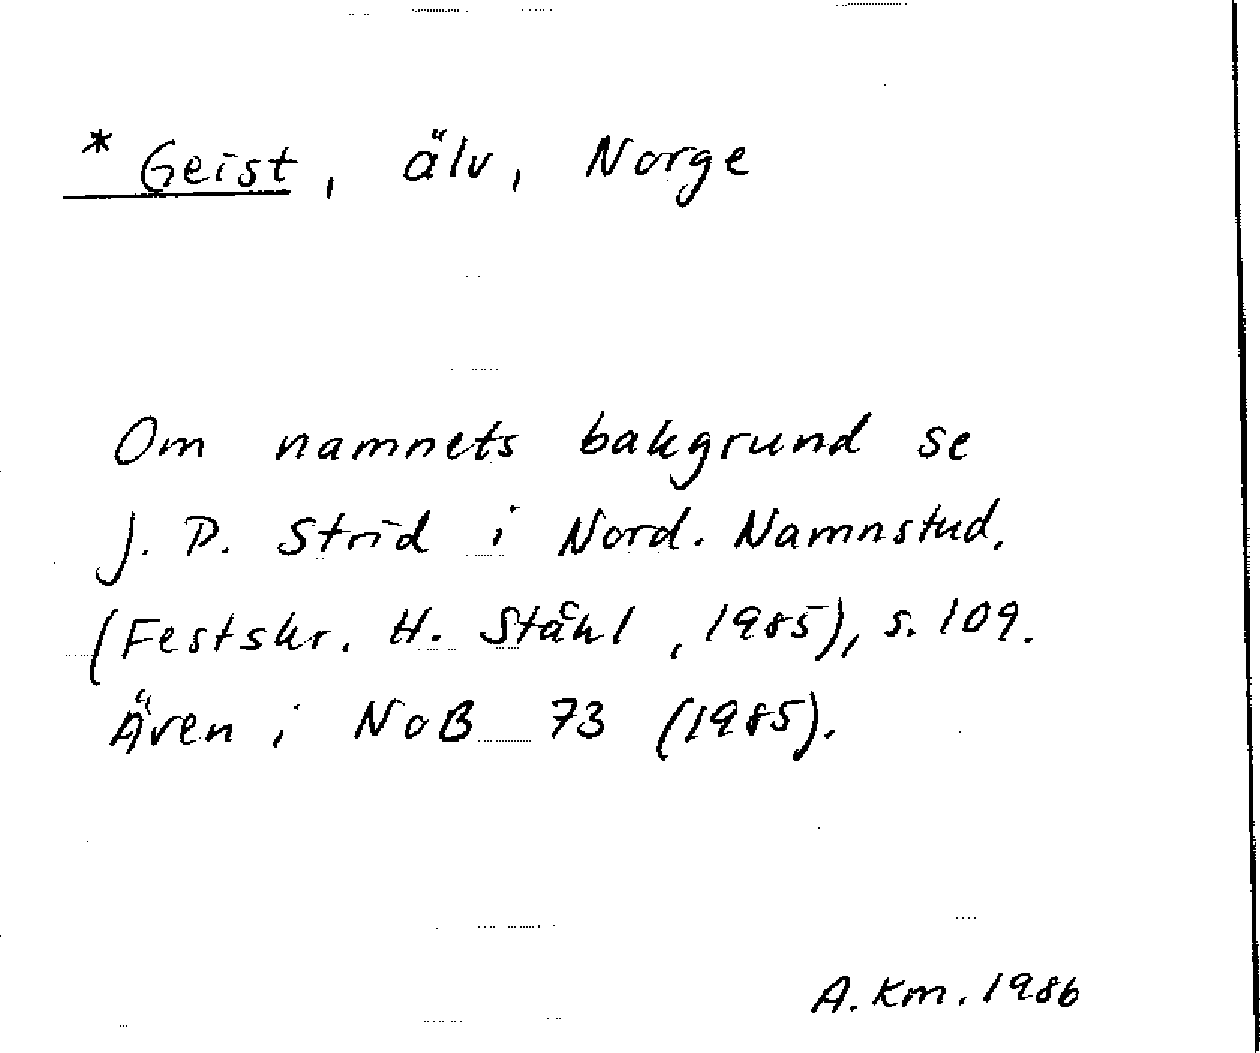 * Geist, älv, Norge
Om namnets bakgrund se
J. P. Strid i Nord. Namnstud.
(Festskr. H. Ståhl, 1985), s. 109.
Även i NoB 73 (1985).
A. Km. 1986